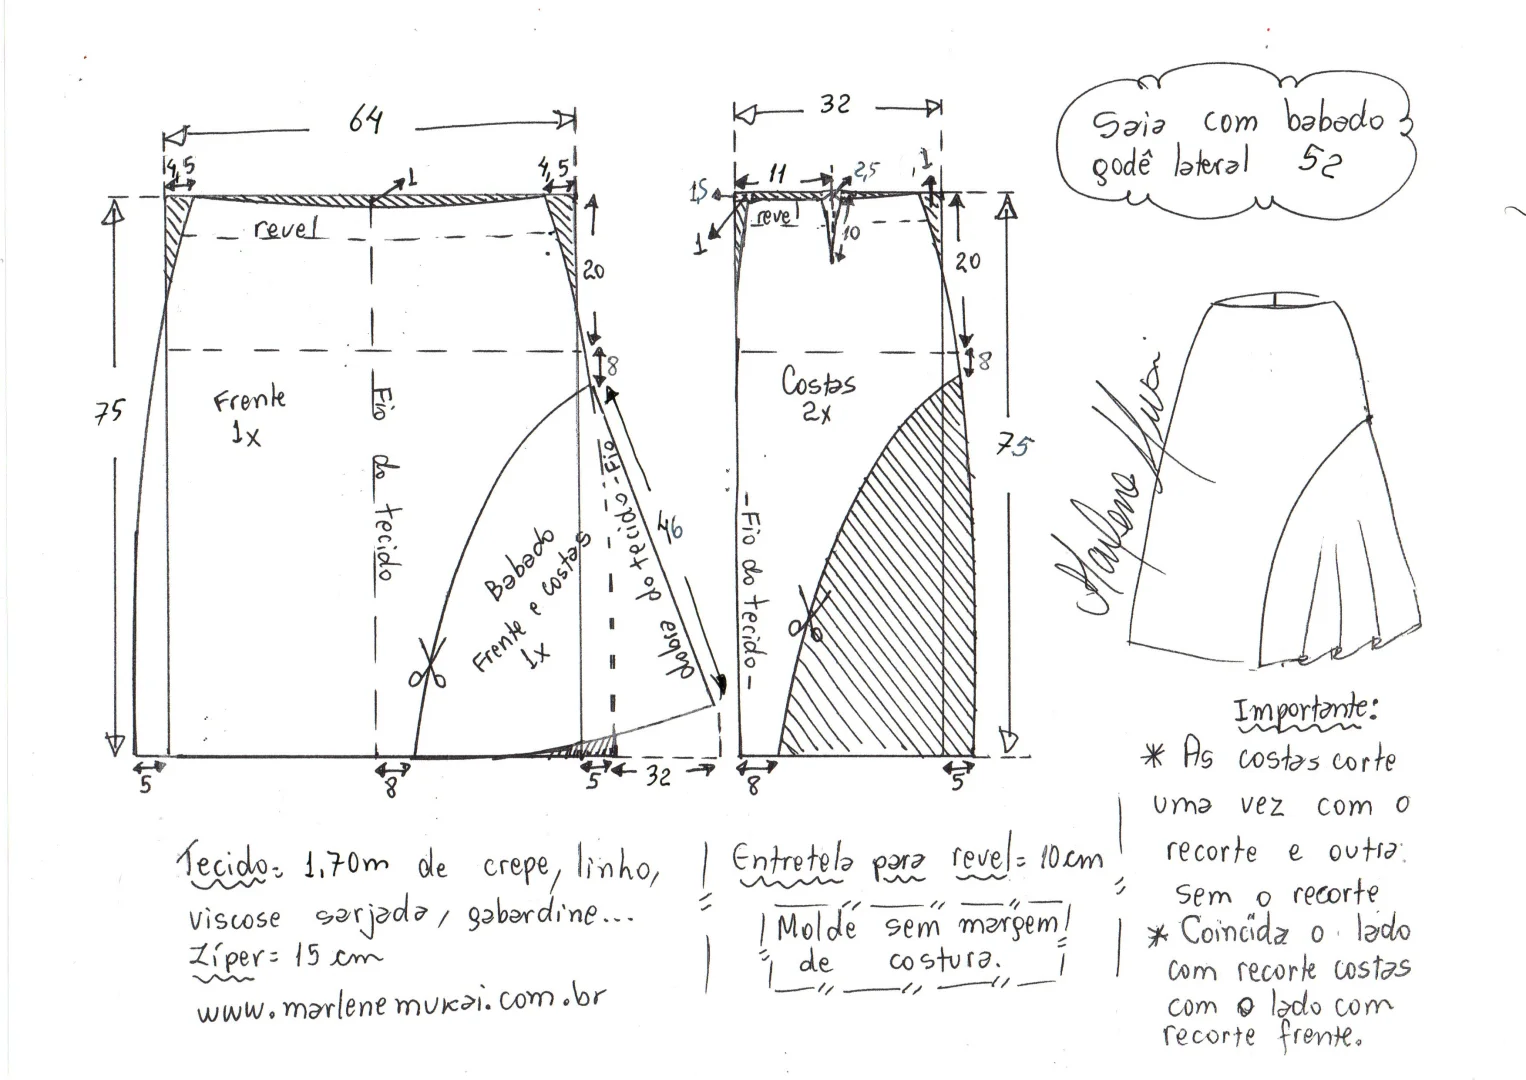 Saia com babado
godê lateral 52
64
32
4,5
4,5
1
11
2,5
1
1,5
1
revel
revel
10
20
20
8
8
75
75
Frente
1x
Costas
2x
Fio do tecido
Fio do tecido
dobra
46
Babado
Frente e costas
1x
-Fio do tecido-
5
8
5
32
8
5
Marlene Mukai
Importante:
* As costas corte
uma vez com o
recorte e outra
sem o recorte
* Coincida o lado
com recorte costas
com o lado com
recorte frente.
Tecido= 1,70m de crepe, linho,
viscose sarjada, gabardine...
Zíper= 15 cm
www.marlenemukai.com.br
Entretela para revel= 10cm
Molde sem margem
de costura.